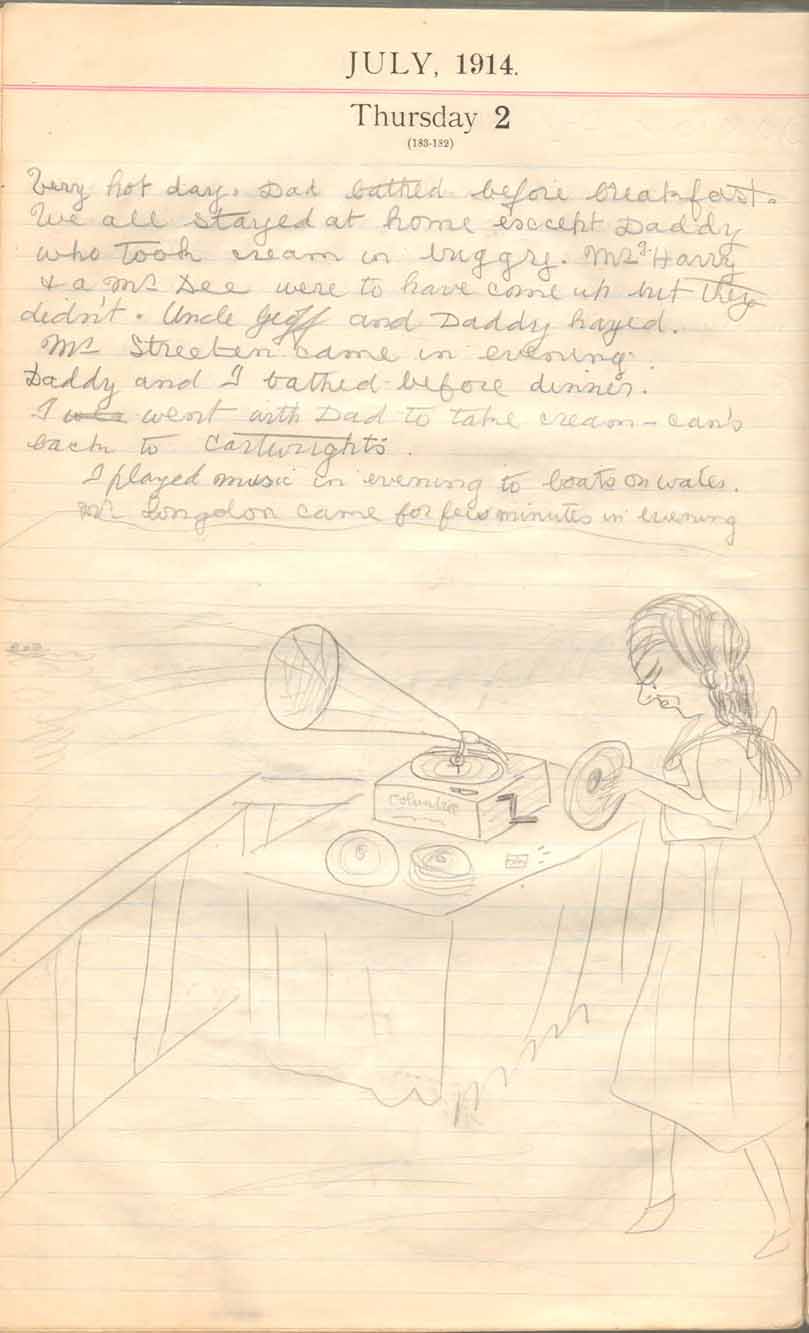 JULY, 1914.
Thursday 2
(183-182)
Very hot day. Dad bathed before breakfast.
We all stayed at home except Daddy
who took cream in buggy. Mrs Harry
& a Mr Dee were to have come up but they
didn't. Uncle Geoff and Daddy hayed.
Mr Streeten came in evening.
Daddy and I bathed before dinner.
I was went with Dad to take cream-can's
back to Cartwrights.
I played music in evening to boats on water.
Mr Longdon came for few minutes in evening
Columbia